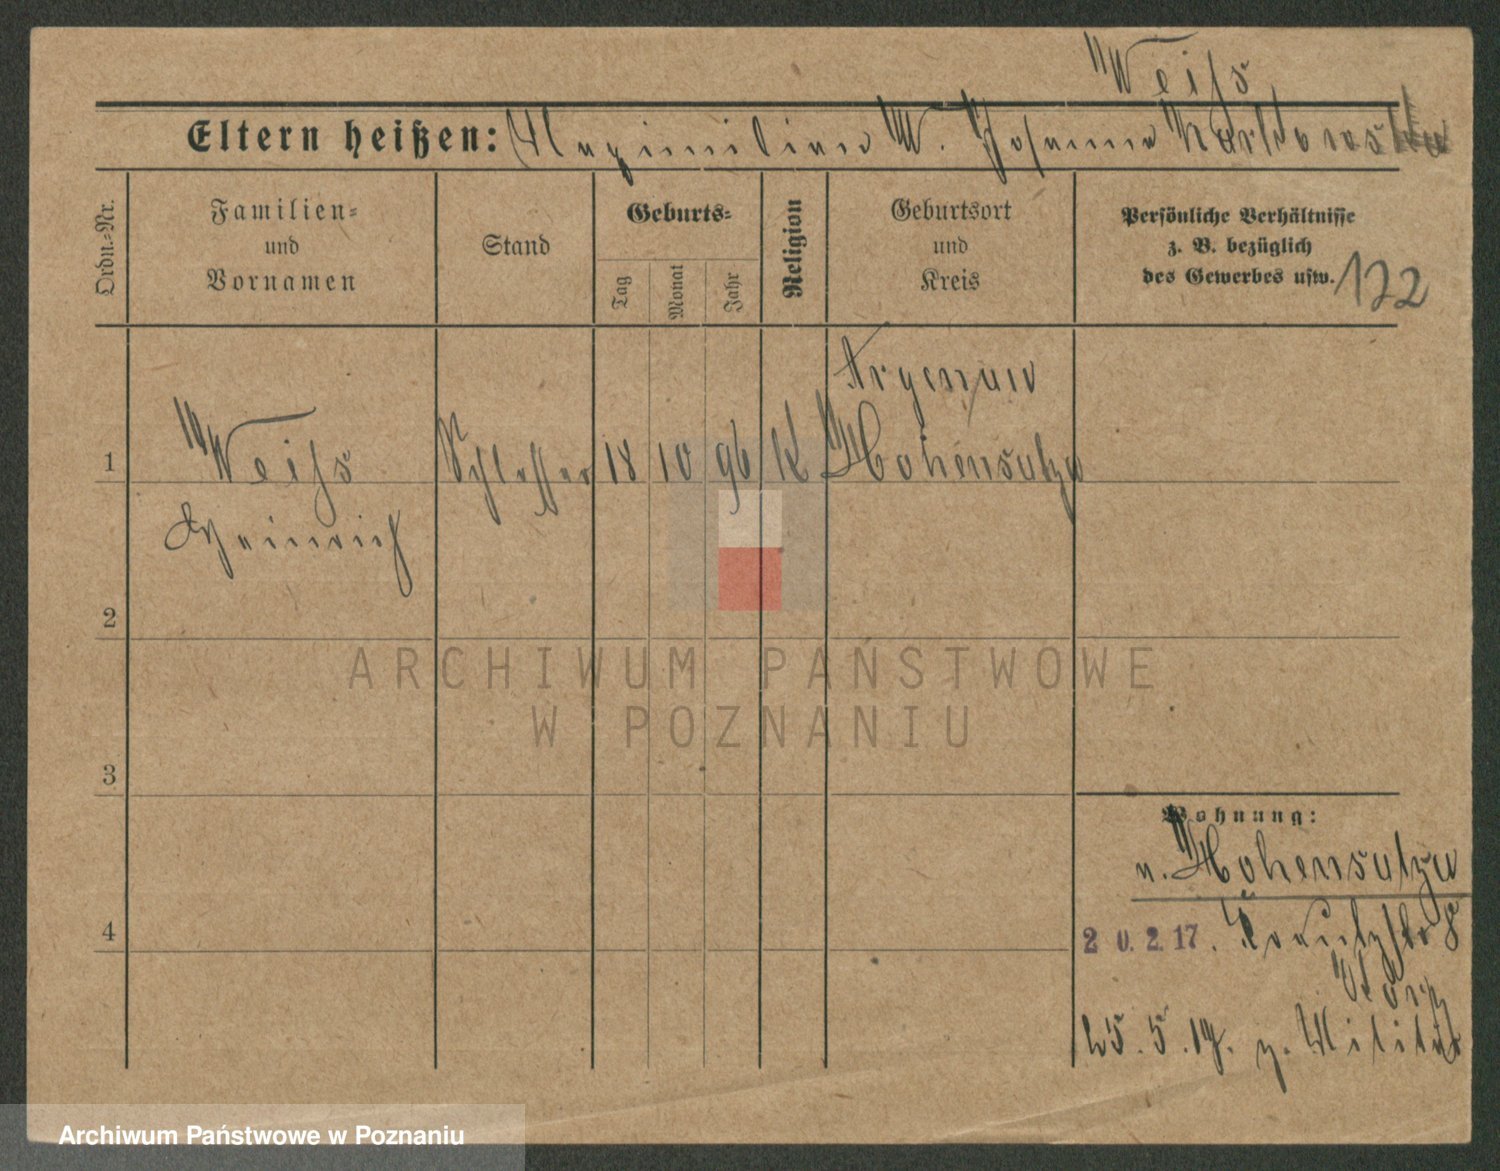 Weiss
Eltern heißen: Maximilian W. Johanna
Ordn.-Nr.
Familien-
und
Vornamen
Stand
Geburts-
Tag
Monat
Jahr
Religion
Geburtsort
und
Kreis
Persönliche Verhältnisse
z. B. bezüglich
des Gewerbes usw. 122
Argenau
1 Weiss Schlosser 18 10 96 K Hohensalza
Heinrich
2
3
4
Wohnung:
n. Hohensalza
20.2.17.
25.5.17. z. Militär
ARCHIWUM PAŃSTWOWE
W POZNANIU
Archiwum Państwowe w Poznaniu